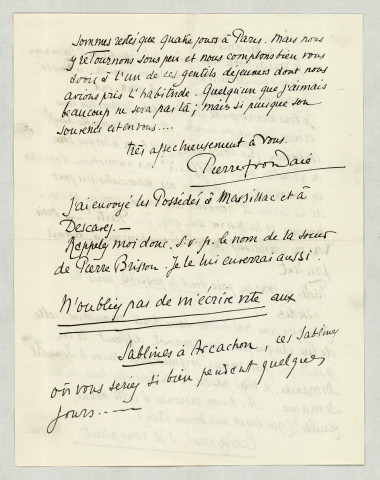 sommes restés que quatre jours à Paris. Mais nous
y retournons sous peu et nous comptons bien vous
avoir à l'un de ces gentils déjeuners dont nous
avions pris l'habitude. Quelqu'un que j'aimais
beaucoup ne sera pas là ; mais si puisque son
souvenir est en vous....
très affectueusement à vous.
Pierre Frondaie
J'ai envoyé les Possédés à Marsillac et à
Descaves. —
Rappelez moi donc. s. v. p. le nom de la soeur
de Pierre Brisson. Je le lui enverrai aussi.
N'oubliez pas de m'écrire vite aux
Sablines à Arcachon, ces Sablines
où vous seriez si bien pendant quelques
jours..—